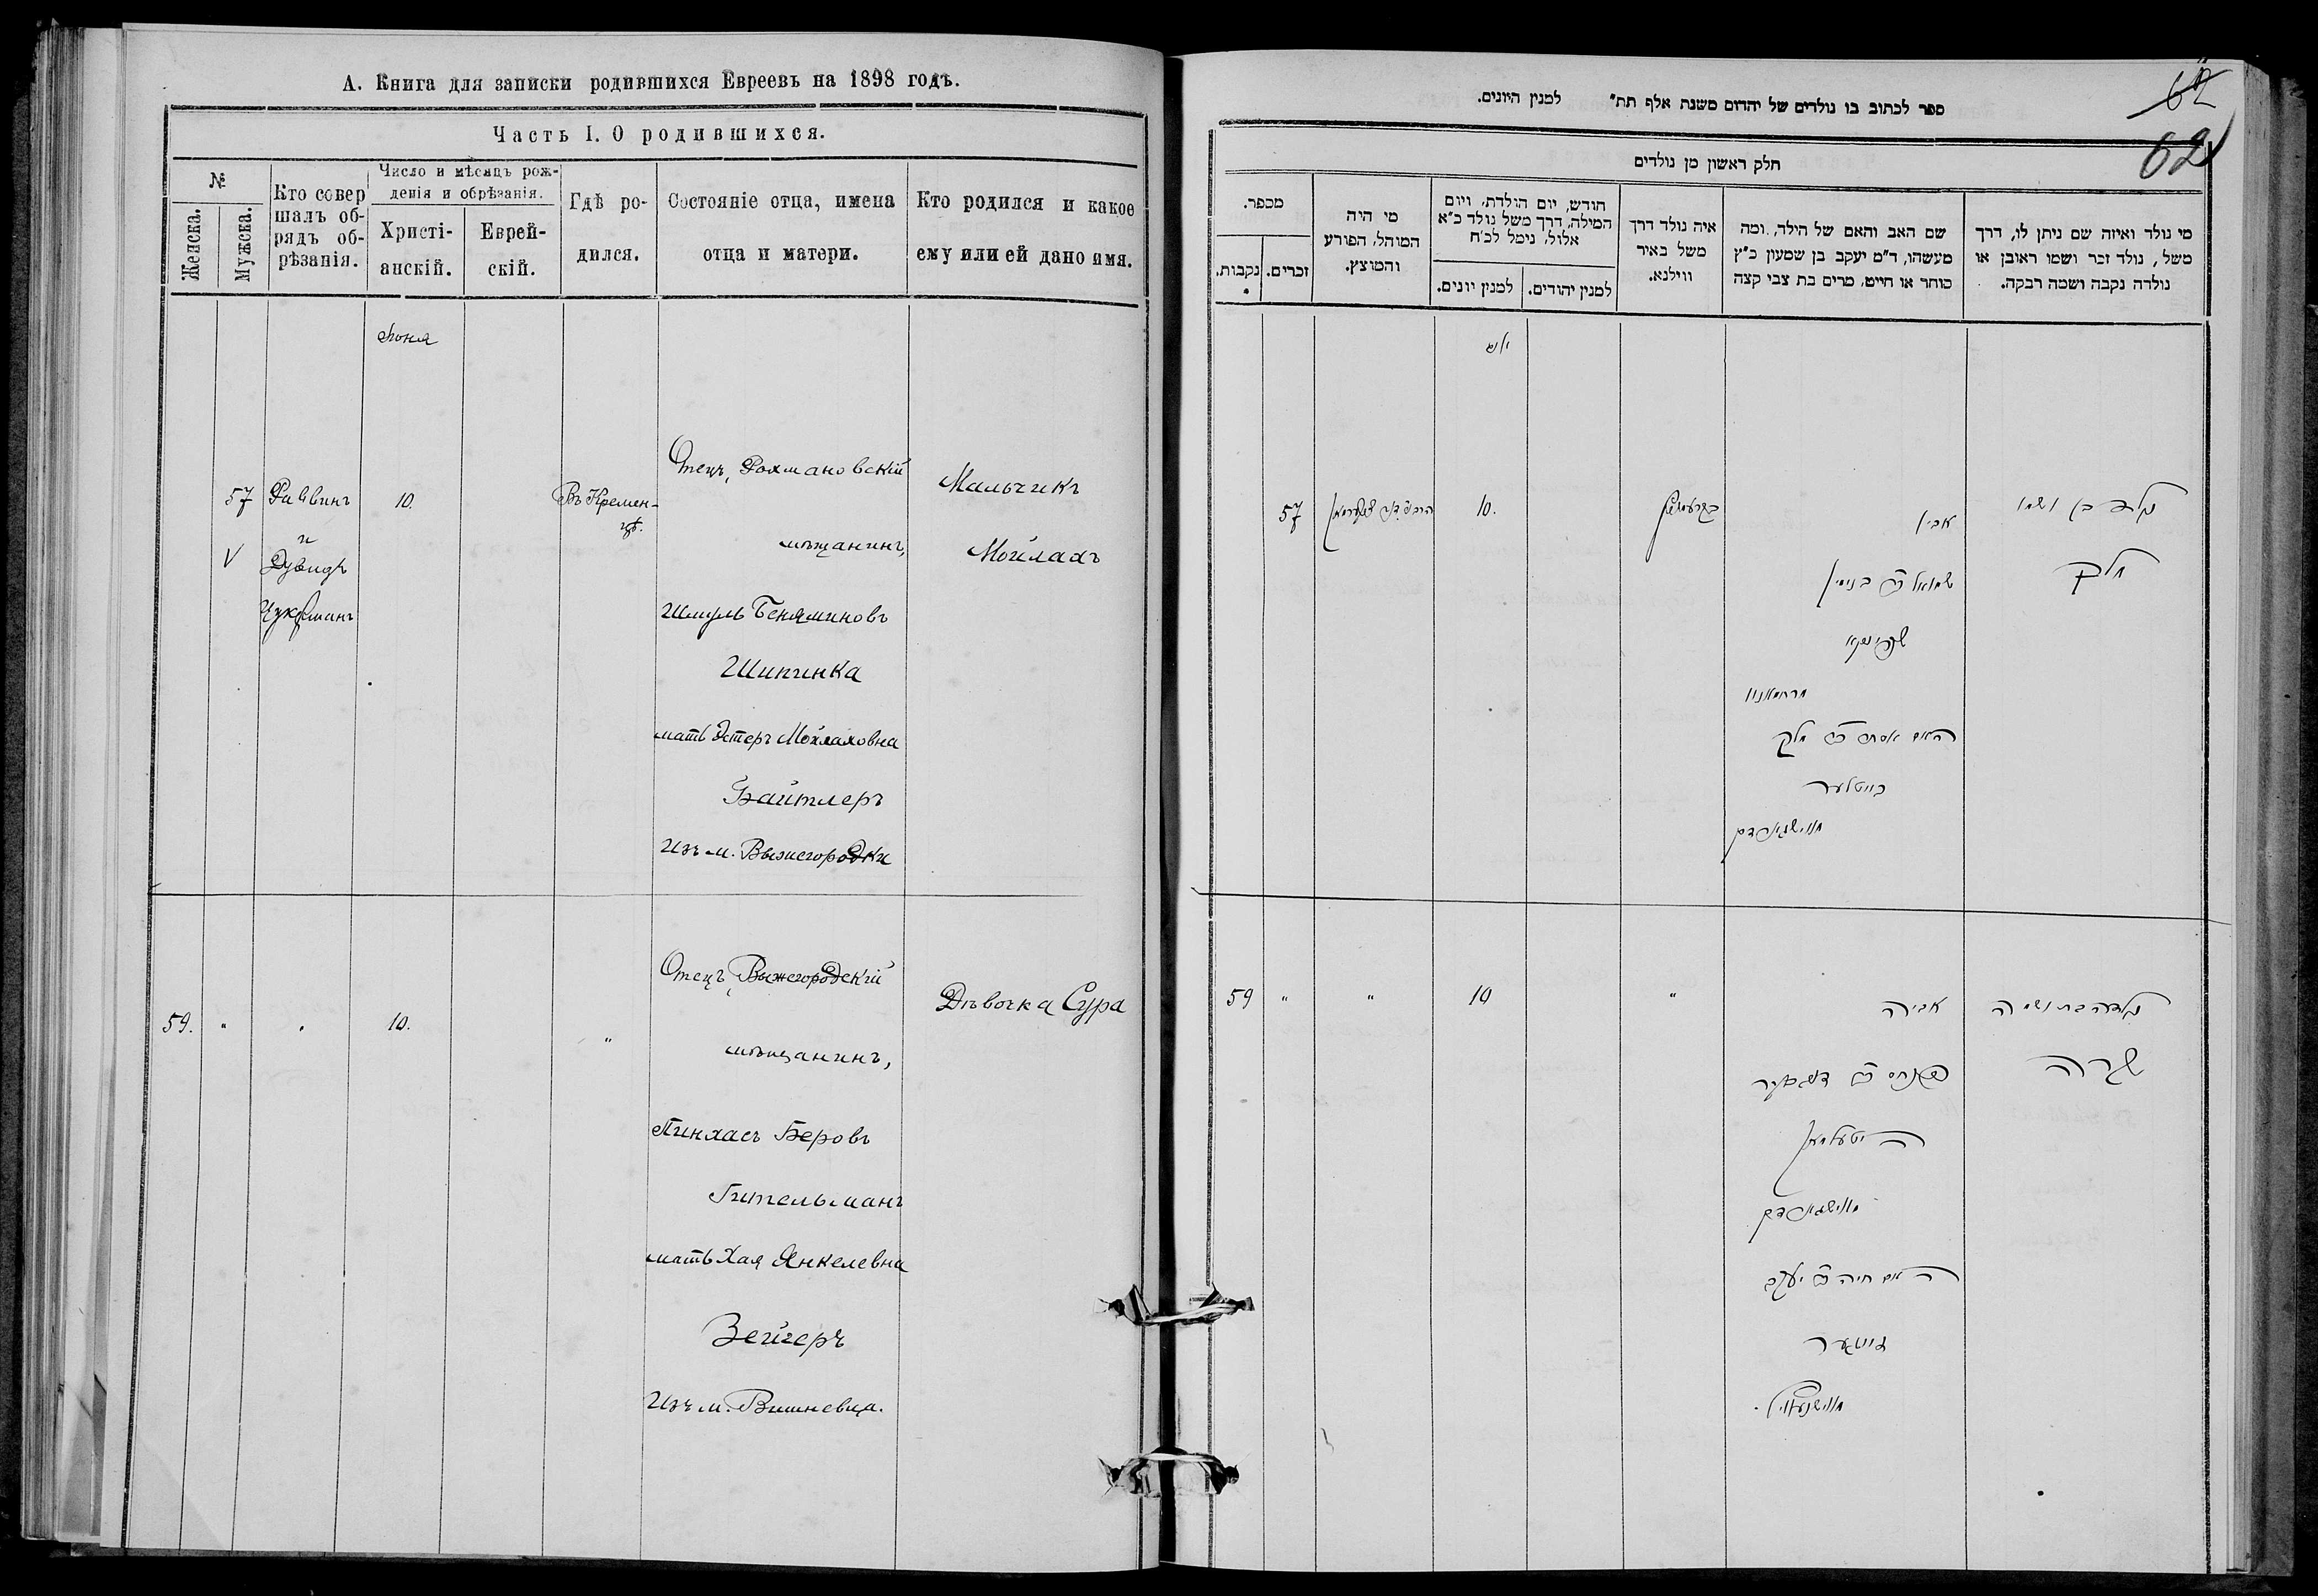 А. Книга для записки родившихся Евреевъ на 1898 годъ.
Часть I. О родившихся.
№
Женска.
Мужска.
Кто совер
шалъ об-
рядъ об-
рѣзанія.
Число и мѣсяцъ рож-
денія и обрѣзанія.
Христі-
анскій.
Еврей-
скій.
Гдѣ ро-
дился.
Состояніе отца, имена
отца и матери.
Кто родился и какое
ему или ей дано имя.
Іюня
57
V
Раввинъ
и
Дувидъ
Цукерманъ
10.
Въ Кремен-
цѣ.
Отецъ, Рахмановскій
мѣщанинъ,
Шмуль Беняминовъ
Шипинка
мать Эстеръ Мойлаховна
Байтлеръ
Изъ м. Вышегородки
Мальчикъ
Мойлахъ
59.
"
"
10.
"
Отецъ, Вышегородскій
мѣщанинъ,
Пинхасъ Беровъ
Гительманъ
мать Хая Янкелевна
Зейгеръ
Изъ м. Вишневца.
Дѣвочка Сура
62
62
ספר לכתוב בו נולדים של יהדום משנת אלף תת" למנין היונים.
חלק ראשון מן נולדים
מספר.
נקבות.
זכרים.
מי היה
המוהל, הפורע
והמוצץ.
חודש, יום הולדת, ויום
המילה, דרך משל נולד כ"א
אלול, נימל לכ"ח
למנין יונים.
למנין יהודים.
איה נולד דרך
משל באיר
ווילנא.
שם האב והאם של הילד, ומה
מעשהו, ד"מ יעקב בן שמעון כ"ץ
סוחר או חייט, מרים בת צבי קצה
מי נולד ואיזה שם ניתן לו, דרך
משל, נולד זכר ושמו ראובן או
נולדה נקבה ושמה רבקה.
יוני
57
10.
אביו
שמואל בן בנימין
האם אסתר בת מלך
בייטלער
נולד בן ושמו
מלך
59
"
"
10
"
אביה
האם חיה בת יעקב
נולדה בת ושמה
שרה